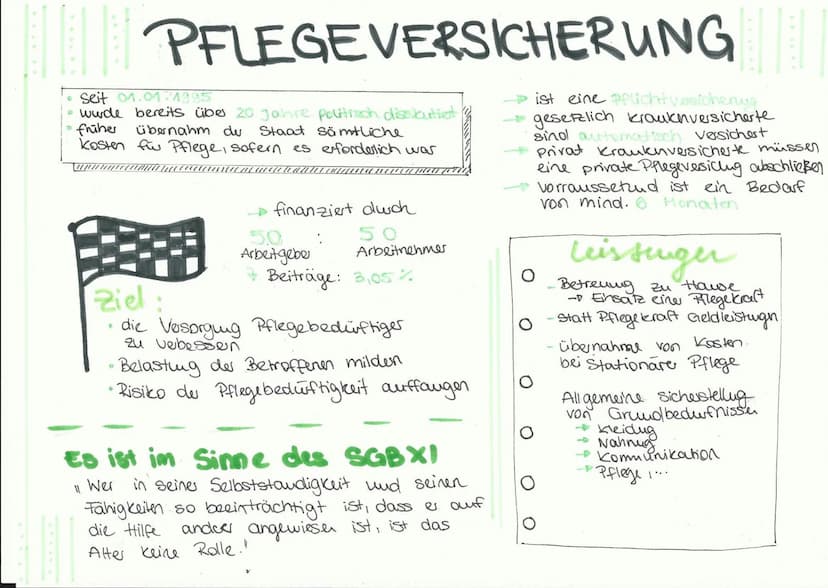 PFLEGEVERSICHERUNG
• seit 01.01.1995
• wurde bereits über 20 Jahre politisch diskutiert
• früher übernahm der Staat sämtliche
Kosten für Pflege, sofern es erforderlich war
→ ist eine Pflichtversicherung
→ gesetzlich Krankenversicherte
sind automatisch versichert
→ privat Krankenversicherte müssen
eine private Pflegeversichug abschließen
→ Vorraussetzund ist ein Bedarf
von mind. 6 Monaten
→ finanziert durch
50 : 50
Arbeitgeber Arbeitnehmer
→ Beiträge: 3,05%
Ziel:
• die Vesorgung Pflegebedüftiger
zu vebessern
• Belastung der Betroffenen milden
• Risiko der Pflegebedüftigkeit auffangen
Leistungen
- Betreuung zu Hause
→ Einsatz eine Pflegekraft
- statt Pflegekraft Geldleistugn
- übernahme von Kosten
bei Stationärer Pflege
Allgemeine Sicherstellug
von Grundbedürfnissen
→ Kleidug
→ Nahrug
→ Kommunikation
→ Pflege,...
Es ist im Sinne des SGB XI
„Wer in seiner Selbstständigkeit und seinen
Fähigkeiten so beeinträchtigt ist, dass er auf
die Hilfe ander angewiesen ist, ist das
Alter keine Rolle."